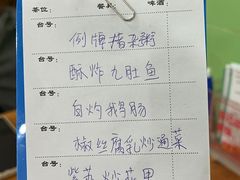 茶位: 餐料: 啤酒:
台号:
例牌猪杂粥
台号:
酥炸九肚鱼
台号:
白灼鹅肠
台号:
椒丝腐乳炒通菜
台号:
紫苏炒花甲